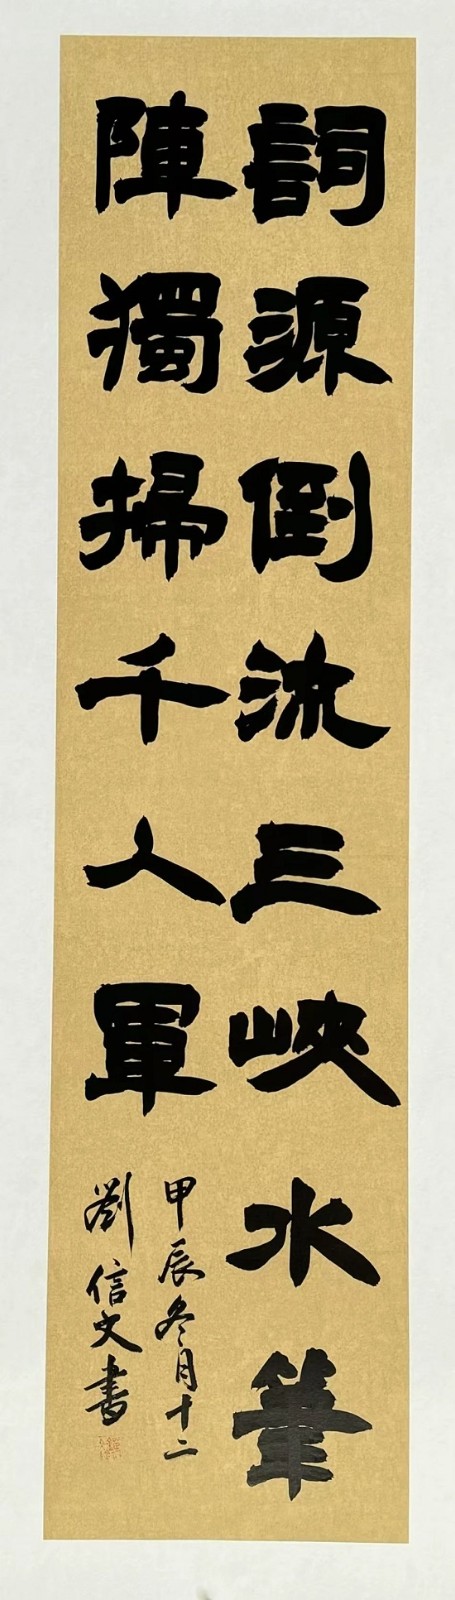 詞源倒流三峽水筆
陣獨掃千人軍
甲辰冬月十二
劉信文書